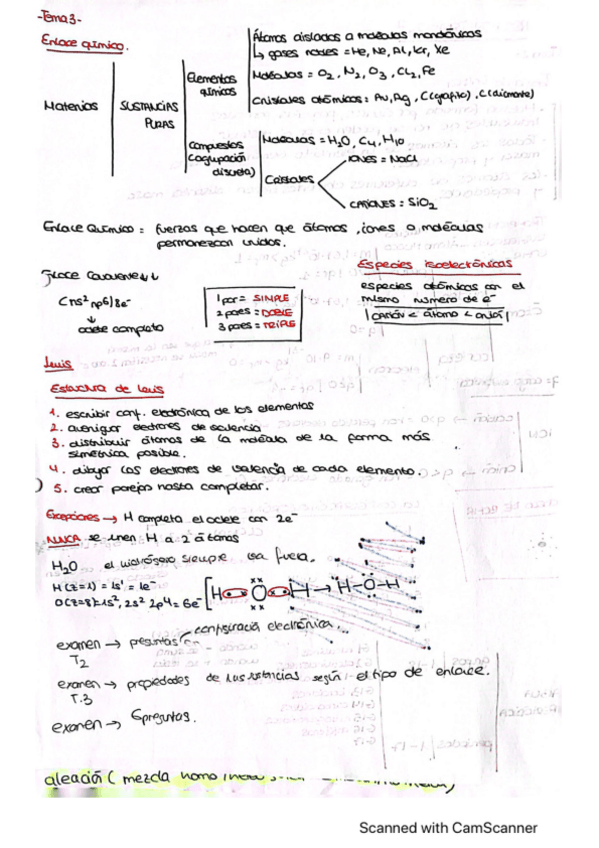 -Tema 3-
Enlace químico.
Átomos aislados o moléculas monoatómicos
↳ gases nobles = He, Ne, Al, Kr, Xe
Elementos químicos
Moléculas = O2, N2, O3, Cl2, Fe
Cristales atómicos: Au, Ag, C (grafito), C (diamante)
Materias
SUSTANCIAS PURAS
Compuestos (agrupación discreta)
Moléculas = H2O, C4, H10
Cristales
IONES = NaCl
= SiO2
Enlace químico = fuerzas que hacen que átomos, iones o moléculas
permanezcan unidos.
Enlace Covalente ↓↓
(ns² np6) 8e-
↓
octete completo
1 par = SIMPLE
2 pares = DOBLE
3 pares = TRIPLE
Especies isoelectónicas
especies atómicas con el
mismo numero de e-
catión < átomo < anión
Lewis
Estructura de Lewis
1. escribir conf. electrónica de los elementos
2. averiguar electrones de valencia
3. distribuir átomos de la molécula de la forma más
simétrica posible.
4. dibujar los electrones de valencia de cada elemento.
5. crear parejas hasta completar.
Excepciones → H completa el octete con 2e-
NUNCA se unen H a 2 átomos
H2O el hidrógeno siempre va fuera.
H (z=1) = 1s¹ = 1e-
O (z=8) = 1s², 2s² 2p4 = 6e-
[H O H → H-Ö-H
examen → preguntas configuració electrónica...
T.2
examen → propiedades de las sustancias según el tipo de enlace.
T.3
examen → 6 preguntas.
aleación ( mezcla
Scanned with CamScanner